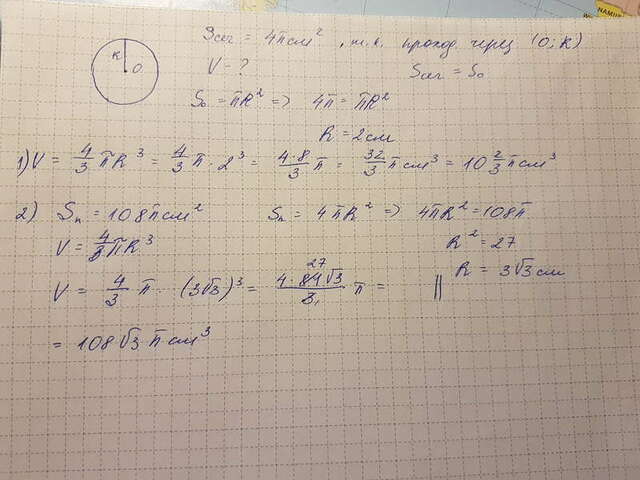 R O
Sсег = 4π см², т.к. проход. через (O; R)
V = ? Sсег = S₀
S₀ = πR² => 4π = πR²
R = 2 см
1) V = 4/3 πR³ = 4/3 π · 2³ = 4·8/3 π = 32/3 π см³ = 10 2/3 π см³
2) Sп = 108π см² Sп = 4πR² => 4πR² = 108π
V = 4/3 πR³ R² = 27
V = 4/3 π · (3√3)³ = 4·81√3/3 · π = || R = 3√3 см
27
= 108√3 π см³